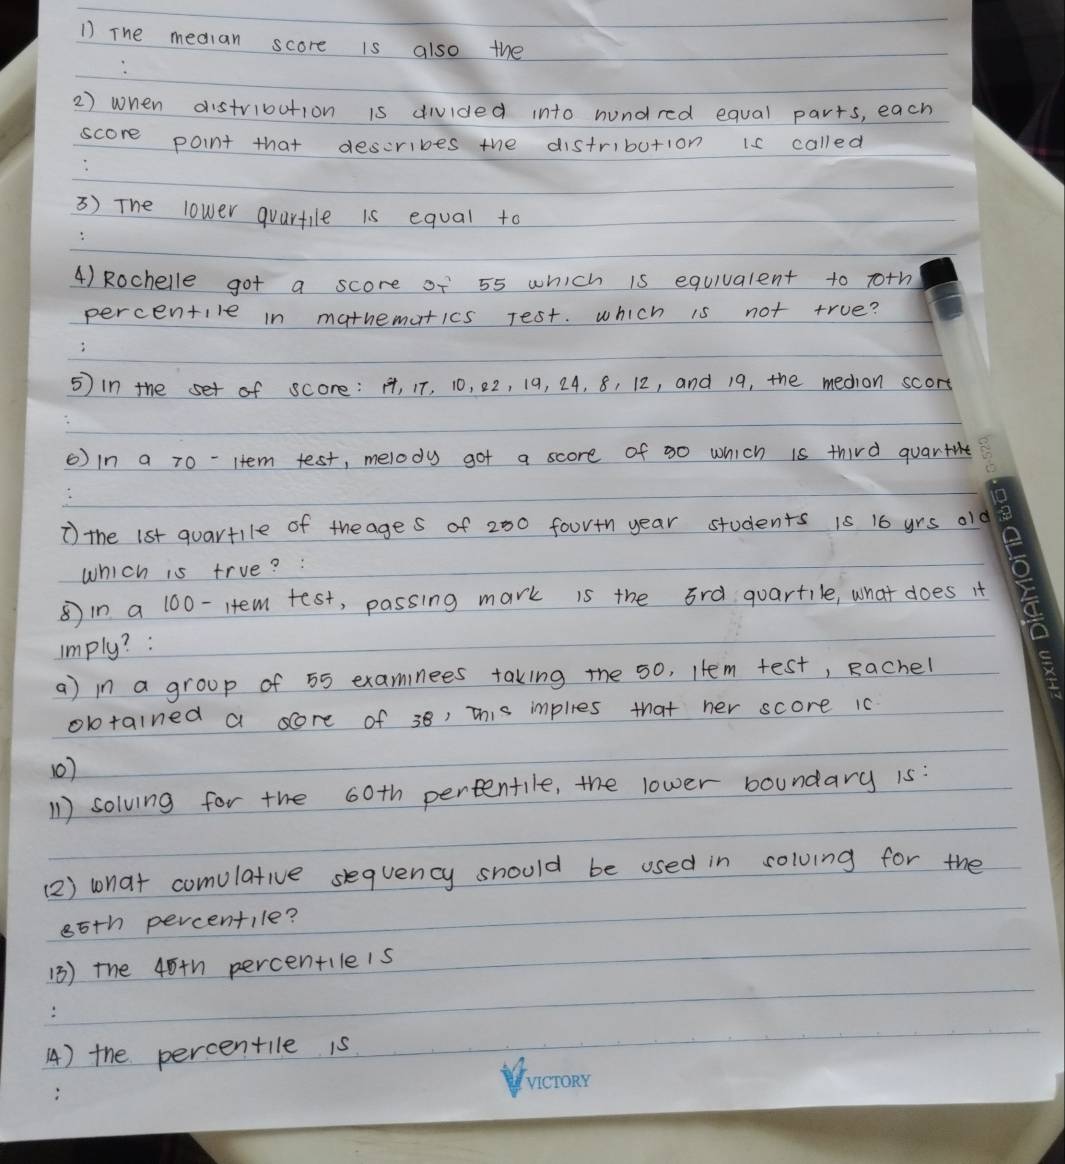 1) The median score is also the
:
2) when distribution is divided into hundred equal parts, each
score point that describes the distribution is called
:
3) The lower quartile is equal to
:
4) Rochelle got a score of 55 which is equivalent to 70th
percentile in mathematics Test. which is not true?
:
5) in the set of score: 17, 10, 22, 19, 24, 8, 12, and 19, the median score
:
6) in a 70 - item test, melody got a score of 50 which is third quartile
:
7) the 1st quartile of the ages of 250 fourth year students is 16 yrs old
which is true? :
8) in a 100 - item test, passing mark is the 3rd quartile, what does it
imply? :
9) in a group of 55 examinees taking the 50, item test, Rachel
obtained a score of 38, This implies that her score is
10)
11) solving for the 60th percentile, the lower boundary is:
12) what comulative sequency should be used in solving for the
85th percentile?
13) The 45th percentile is
:
14) the percentile is
:
VICTORY
ZHIXIN DIAMOND